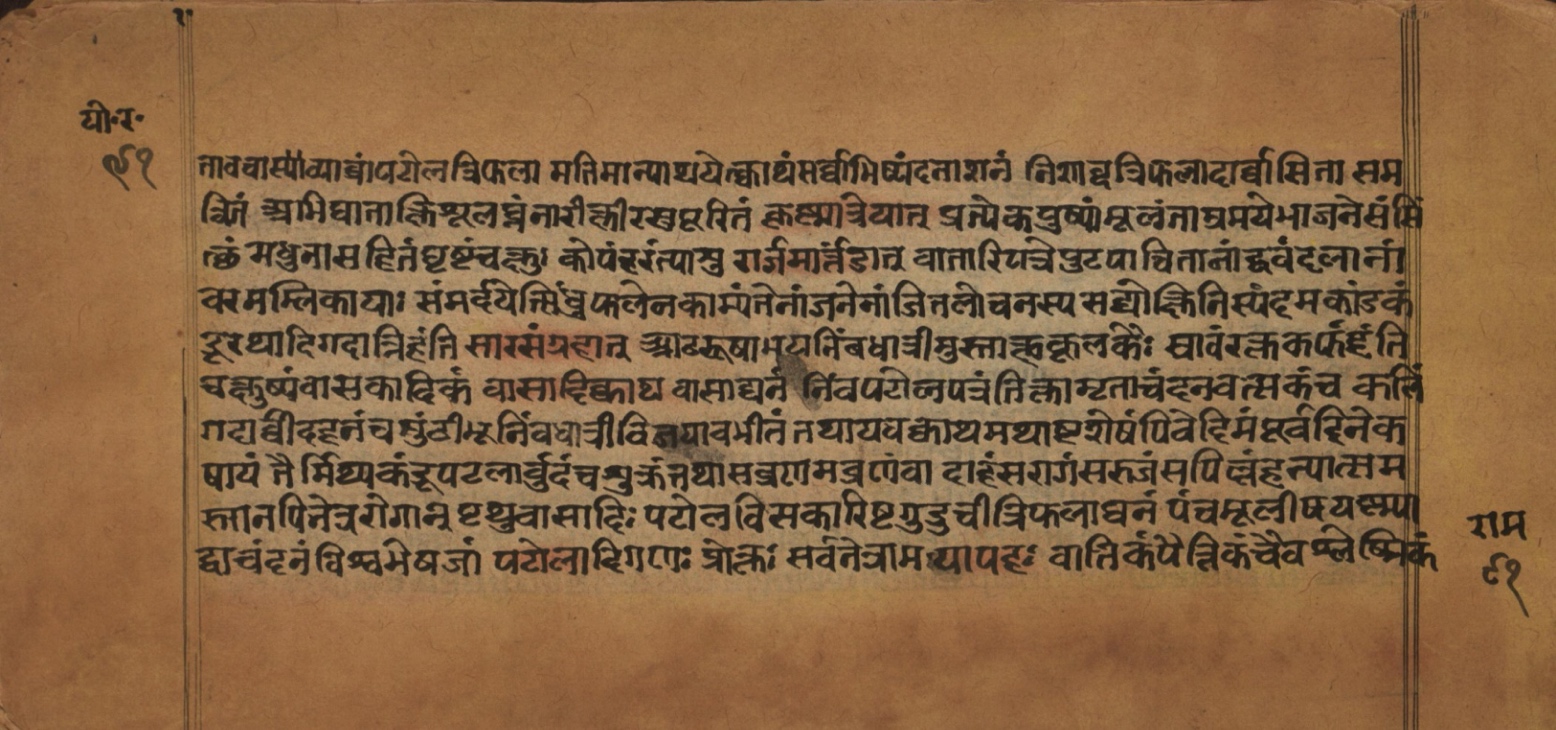 यो॰र॰
९१
तावबास्यो व्याघ्रां पटोलत्रिफला मतिमान्पाययेत्क्वाथं सर्वाभिष्यंदनाशनं निशाद्वत्रिफलादार्वीसिता सम
न्वितं अभिघाताक्षिशूलघ्नं नारीक्षीरसुपूरितं कृष्णात्रेयात् प्रत्येकपुष्पं मूलं ताम्रमये भाजने सं
मधुना सहितं घृष्टं चक्षुः कोपं हरंत्पासु राजमार्त्तंडात् वातारिपत्रे पुटपाचितानां द्रवं दलानां
वरमम्लिकायाः संमर्दयेत्सिंधुफलेन काम्यं तेनांजनेनांजितलोचनस्य सद्योक्षिनिस्यंदमकांडकं
डूरथादिगदान्निहंति सारसंग्रहात् आटरूषाभयानिंबधात्रीमुस्ताक्षकूलकैः स्रावं रक्तकफं हंति
चक्षुष्यं वासकादिकं वासादिक्वाथ वासाघनं निंबपटोलपत्रं तिक्तामृताचंदनवत्सकं च कलिं
गदार्वीदहनं च शुंठीभूनिंबधात्रीविजयायवभीतं तथाययक्वाथमथाष्टशेषं पिबेदिमं पूर्वदिने क
षायं तैर्मिथ्यकंडूपटलार्बुदं च शुक्रं तथा सव्रणमव्रणं वा दाहं सरागं सरुजं सपिल्लं हन्यात्सम
स्तानपि नेत्ररोगान् पृथुवासादिः पटोलविसकारिष्टगुडुचीत्रिफलाघनं पंचमूलीषयष्ट्या
ह्वाचंदनं विश्वभेषजां पटोलादिगणः प्रोक्तः सर्वनेत्रामयापहः वातिकं पैत्तिकं चैव श्लेष्मिकं
राम
९१